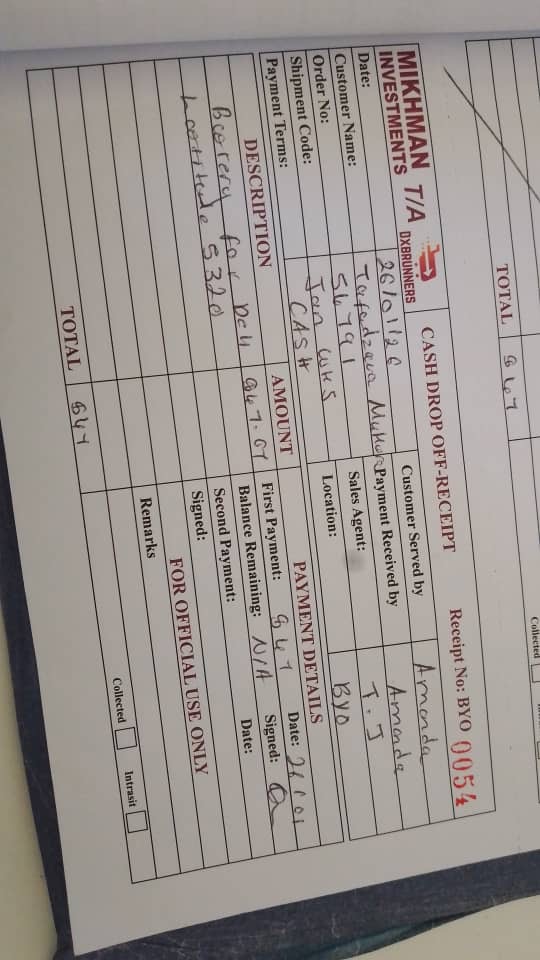 TOTAL $47
Collected
MIKHMAN T/A
INVESTMENTS DXBRUNNERS
CASH DROP OFF-RECEIPT
Receipt No: BYO 0054
Date: 26/01/26
Customer Served by Amanda
Customer Name: Tafadzwa
Payment Received by Amanda
Order No: 54791
Sales Agent: T.J
Shipment Code: Jan
Location: BYO
Payment Terms: CASH
DESCRIPTION AMOUNT
PAYMENT DETAILS
Battery for Dell $47.07
First Payment: $47 Date: 26/01
Lattitude 5320
Balance Remaining: N/A Signed:
Second Payment: Date:
Signed:
FOR OFFICIAL USE ONLY
Remarks
TOTAL $47
Collected Intrasit